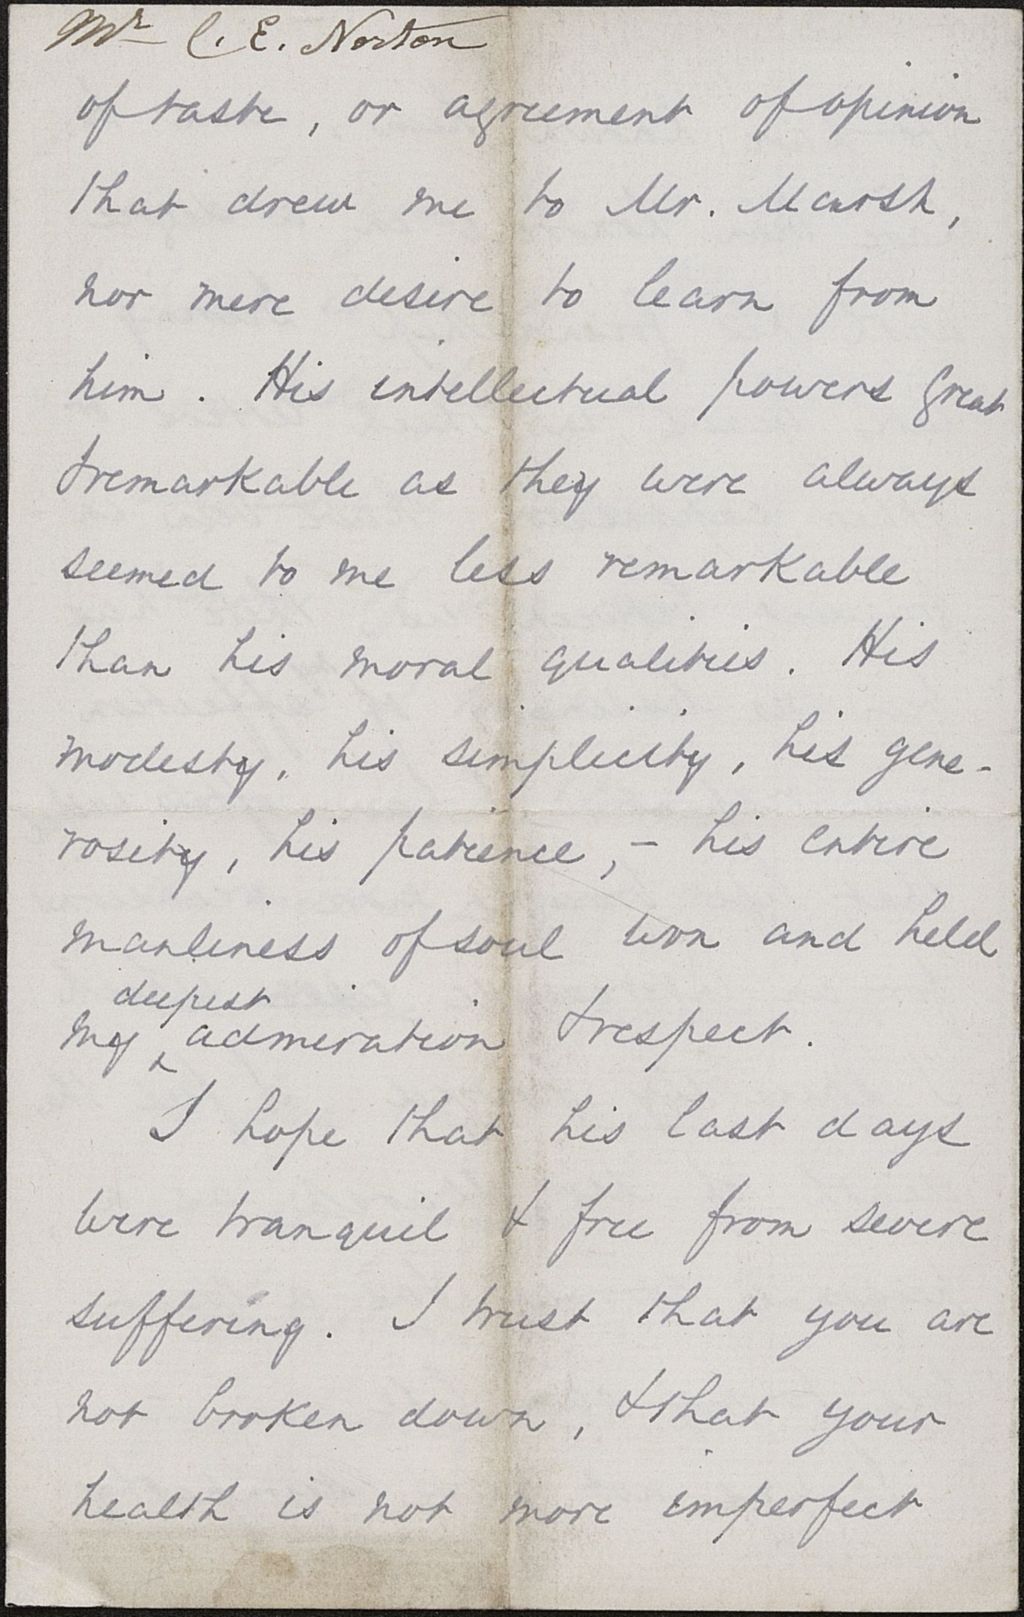 Mr C. E. Norton
of taste, or agreement of opinion
that drew me to Mr. Marsh,
nor mere desire to learn from
him. His intellectual powers great
& remarkable as they were always
seemed to me less remarkable
than his moral qualities. His
modesty, his simplicity, his gene-
rosity, his patience, - his entire
manliness of soul won and held
deepest
my ^ admiration & respect.
I hope that his last days
were tranquil & free from severe
suffering. I trust that you are
not broken down, & that your
health is not more imperfect